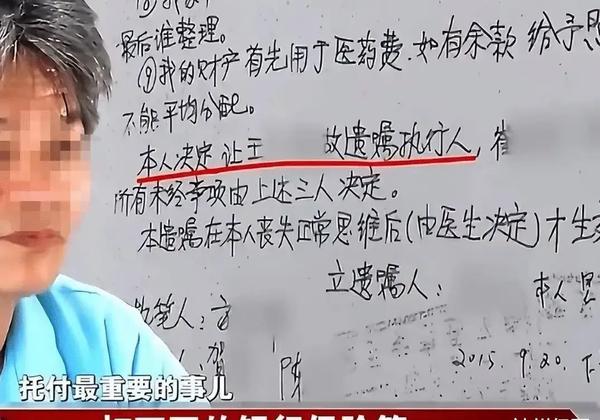 最后谁整理。
⑨我的财产首先用于医药费.如有余款 给予照
不能平均分配。
本人决定让王 做遗嘱执行人,
所有未经事项由上述三人决定。
本遗嘱在本人丧失正常思维后(由医生决定)才生
立遗嘱人: 本人
执笔人:方
人:贺 陈 2015.9.20.下
托付最重要的事儿